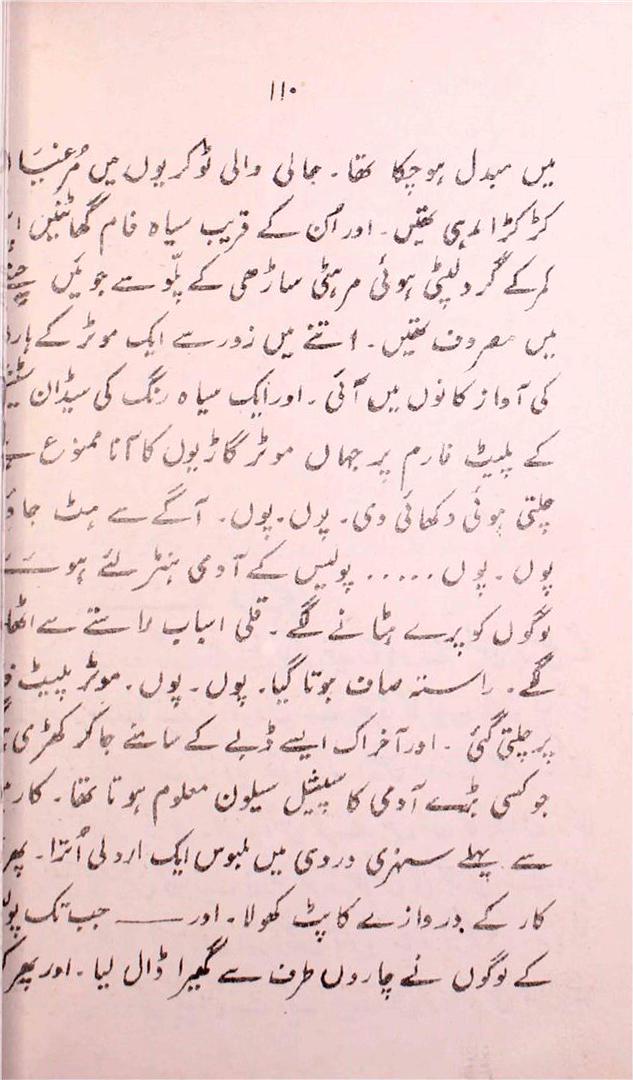 ۱۱۰
میں مبدل ہوچکا تھا۔ جالی والی ٹوکریوں میں مُرغیاں
کڑکڑا رہی تھیں۔ اور اُن کے قریب سیاہ فام گھاٹنیں
کمر کے گرد لپٹی ہوئی مرہٹی ساڑھی کے پلّو سے جوئیں چننے
میں مصروف تھیں۔ اتنے میں زور سے ایک موٹر کے ہارن
کی آواز کانوں میں آئی۔ اور ایک سیاہ رنگ کی سیڈان
کے پلیٹ فارم پر جہاں موٹر گاڑیوں کا آنا ممنوع ہے
چلتی ہوئی دکھائی دی۔ پوں۔ پوں۔ آگے سے ہٹ جاؤ
پوں۔ پوں ..... پولیس کے آدمی ہنٹر لئے ہوئے
لوگوں کو پرے ہٹانے لگے۔ قلی اسباب راستے سے اٹھانے
لگے۔ راستہ صاف ہوتا گیا۔ پوں۔ پوں۔ موٹر پلیٹ
پر چلتی گئی۔ اور آخر اک ایسے ڈبے کے سامنے جا کر کھڑی
جو کسی بڑے آدمی کا سپیشل سیلون معلوم ہوتا تھا۔ کار
سے پہلے سنہری وردی میں ملبوس ایک اردلی اُترا۔ پھر
کار کے دروازے کا پٹ کھولا۔ اور —— جب تک
کے لوگوں نے چاروں طرف سے گھیرا ڈال لیا۔ اور پھر